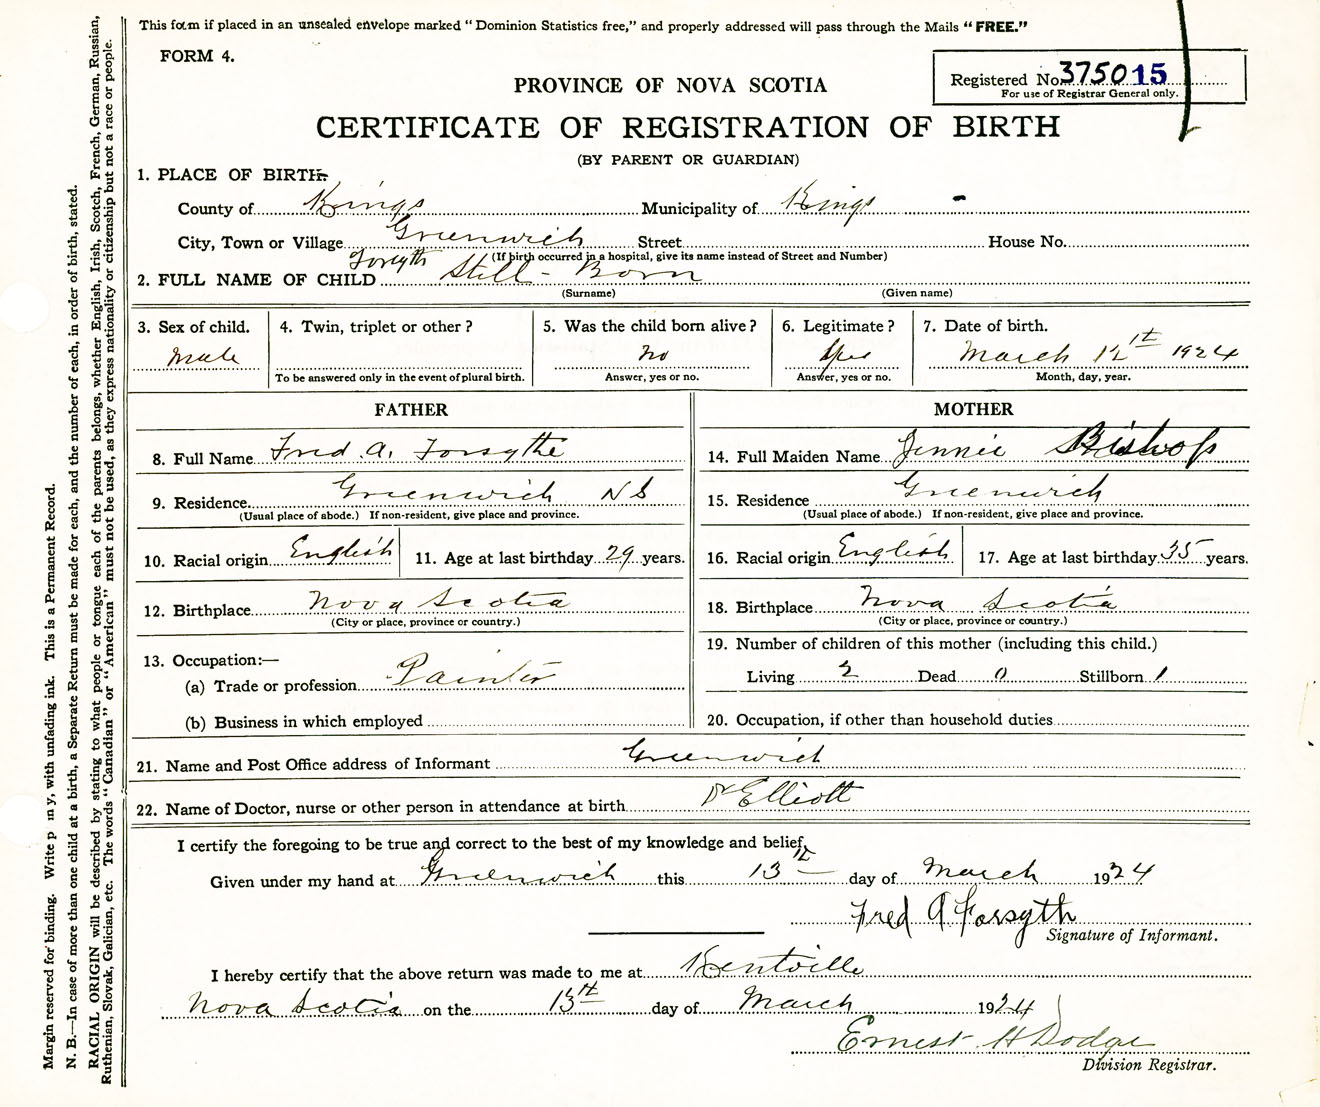 This form if placed in an unsealed envelope marked "Dominion Statistics free," and properly addressed will pass through the Mails "FREE."
FORM 4.
Registered No. 375015
For use of Registrar General only.
PROVINCE OF NOVA SCOTIA
CERTIFICATE OF REGISTRATION OF BIRTH
(BY PARENT OR GUARDIAN)
1. PLACE OF BIRTH.
County of Kings Municipality of Kings
City, Town or Village Greenwich Street House No.
(If birth occurred in a hospital, give its name instead of Street and Number)
2. FULL NAME OF CHILD Forsyth Still-Born
(Surname) (Given name)
3. Sex of child. 4. Twin, triplet or other? 5. Was the child born alive? 6. Legitimate? 7. Date of birth.
Male no yes March 12th 1924
To be answered only in the event of plural birth. Answer, yes or no. Answer, yes or no. Month, day, year.
FATHER
8. Full Name Fred. A. Forsythe
9. Residence. Greenwich NS
(Usual place of abode.) If non-resident, give place and province.
10. Racial origin English 11. Age at last birthday 29 years.
12. Birthplace Nova Scotia
(City or place, province or country.)
13. Occupation:—
(a) Trade or profession Painter
(b) Business in which employed
MOTHER
14. Full Maiden Name Jennie Bishop
15. Residence Greenwich
(Usual place of abode.) If non-resident, give place and province.
16. Racial origin English 17. Age at last birthday 35 years.
18. Birthplace Nova Scotia
(City or place, province or country.)
19. Number of children of this mother (including this child.)
Living 2 Dead 0 Stillborn 1
20. Occupation, if other than household duties
21. Name and Post Office address of Informant Greenwich
22. Name of Doctor, nurse or other person in attendance at birth Dr Elliott
I certify the foregoing to be true and correct to the best of my knowledge and belief,
Given under my hand at Greenwich this 13th day of March 1924
Fred A Forsyth
Signature of Informant.
I hereby certify that the above return was made to me at Kentville
Nova Scotia on the 13th day of March 1924
Ernest H Dodge
Division Registrar.
Margin reserved for binding. Write p m y, with unfading ink. This is a Permanent Record.
N. B.—In case of more than one child at a birth, a Separate Return must be made for each, and the number of each, in order of birth, stated.
RACIAL ORIGIN will be described by stating to what people or tongue each of the parents belongs, whether English, Irish, Scotch, French, German, Russian,
Ruthenian, Slovak, Galician, etc. The words "Canadian" or "American" must not be used, as they express nationality or citizenship but not a race or people.